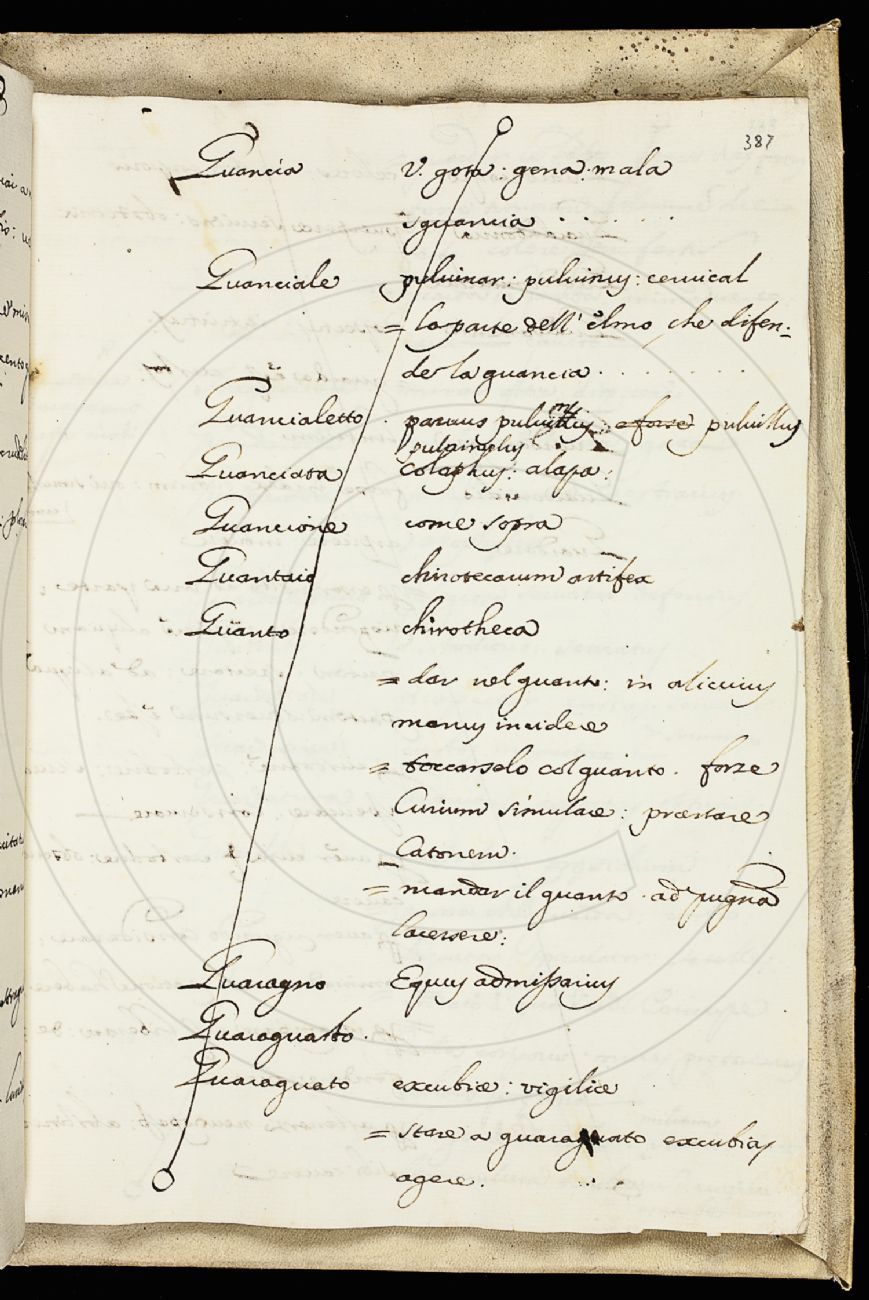 387
Guancia v. gota: gena: mala
sguancia . . . . .
Guanciale pulvinar: pulvinus: cervical
= la parte dell' elmo che difen=
de la guancia . . . . . .
Guancialetto parvus pulvinus: e forse pulvillus
pulvinulus
Guanciata colaphus: alapa:
Guancione come sopra
Guantaio chirotecarum artifex
Guanto chirotheca
= dar nel guanto: in alicuius
manus incidere
= toccarselo col guanto. forze
Curium simulare: præstare
Catonem.
= mandar il guanto. ad pugna
lacessere:
Guaragno Equus admissarius
Guaraguasto.
Guaraguato excubiæ: vigiliæ
= stare a guaraguato excubias
agere.